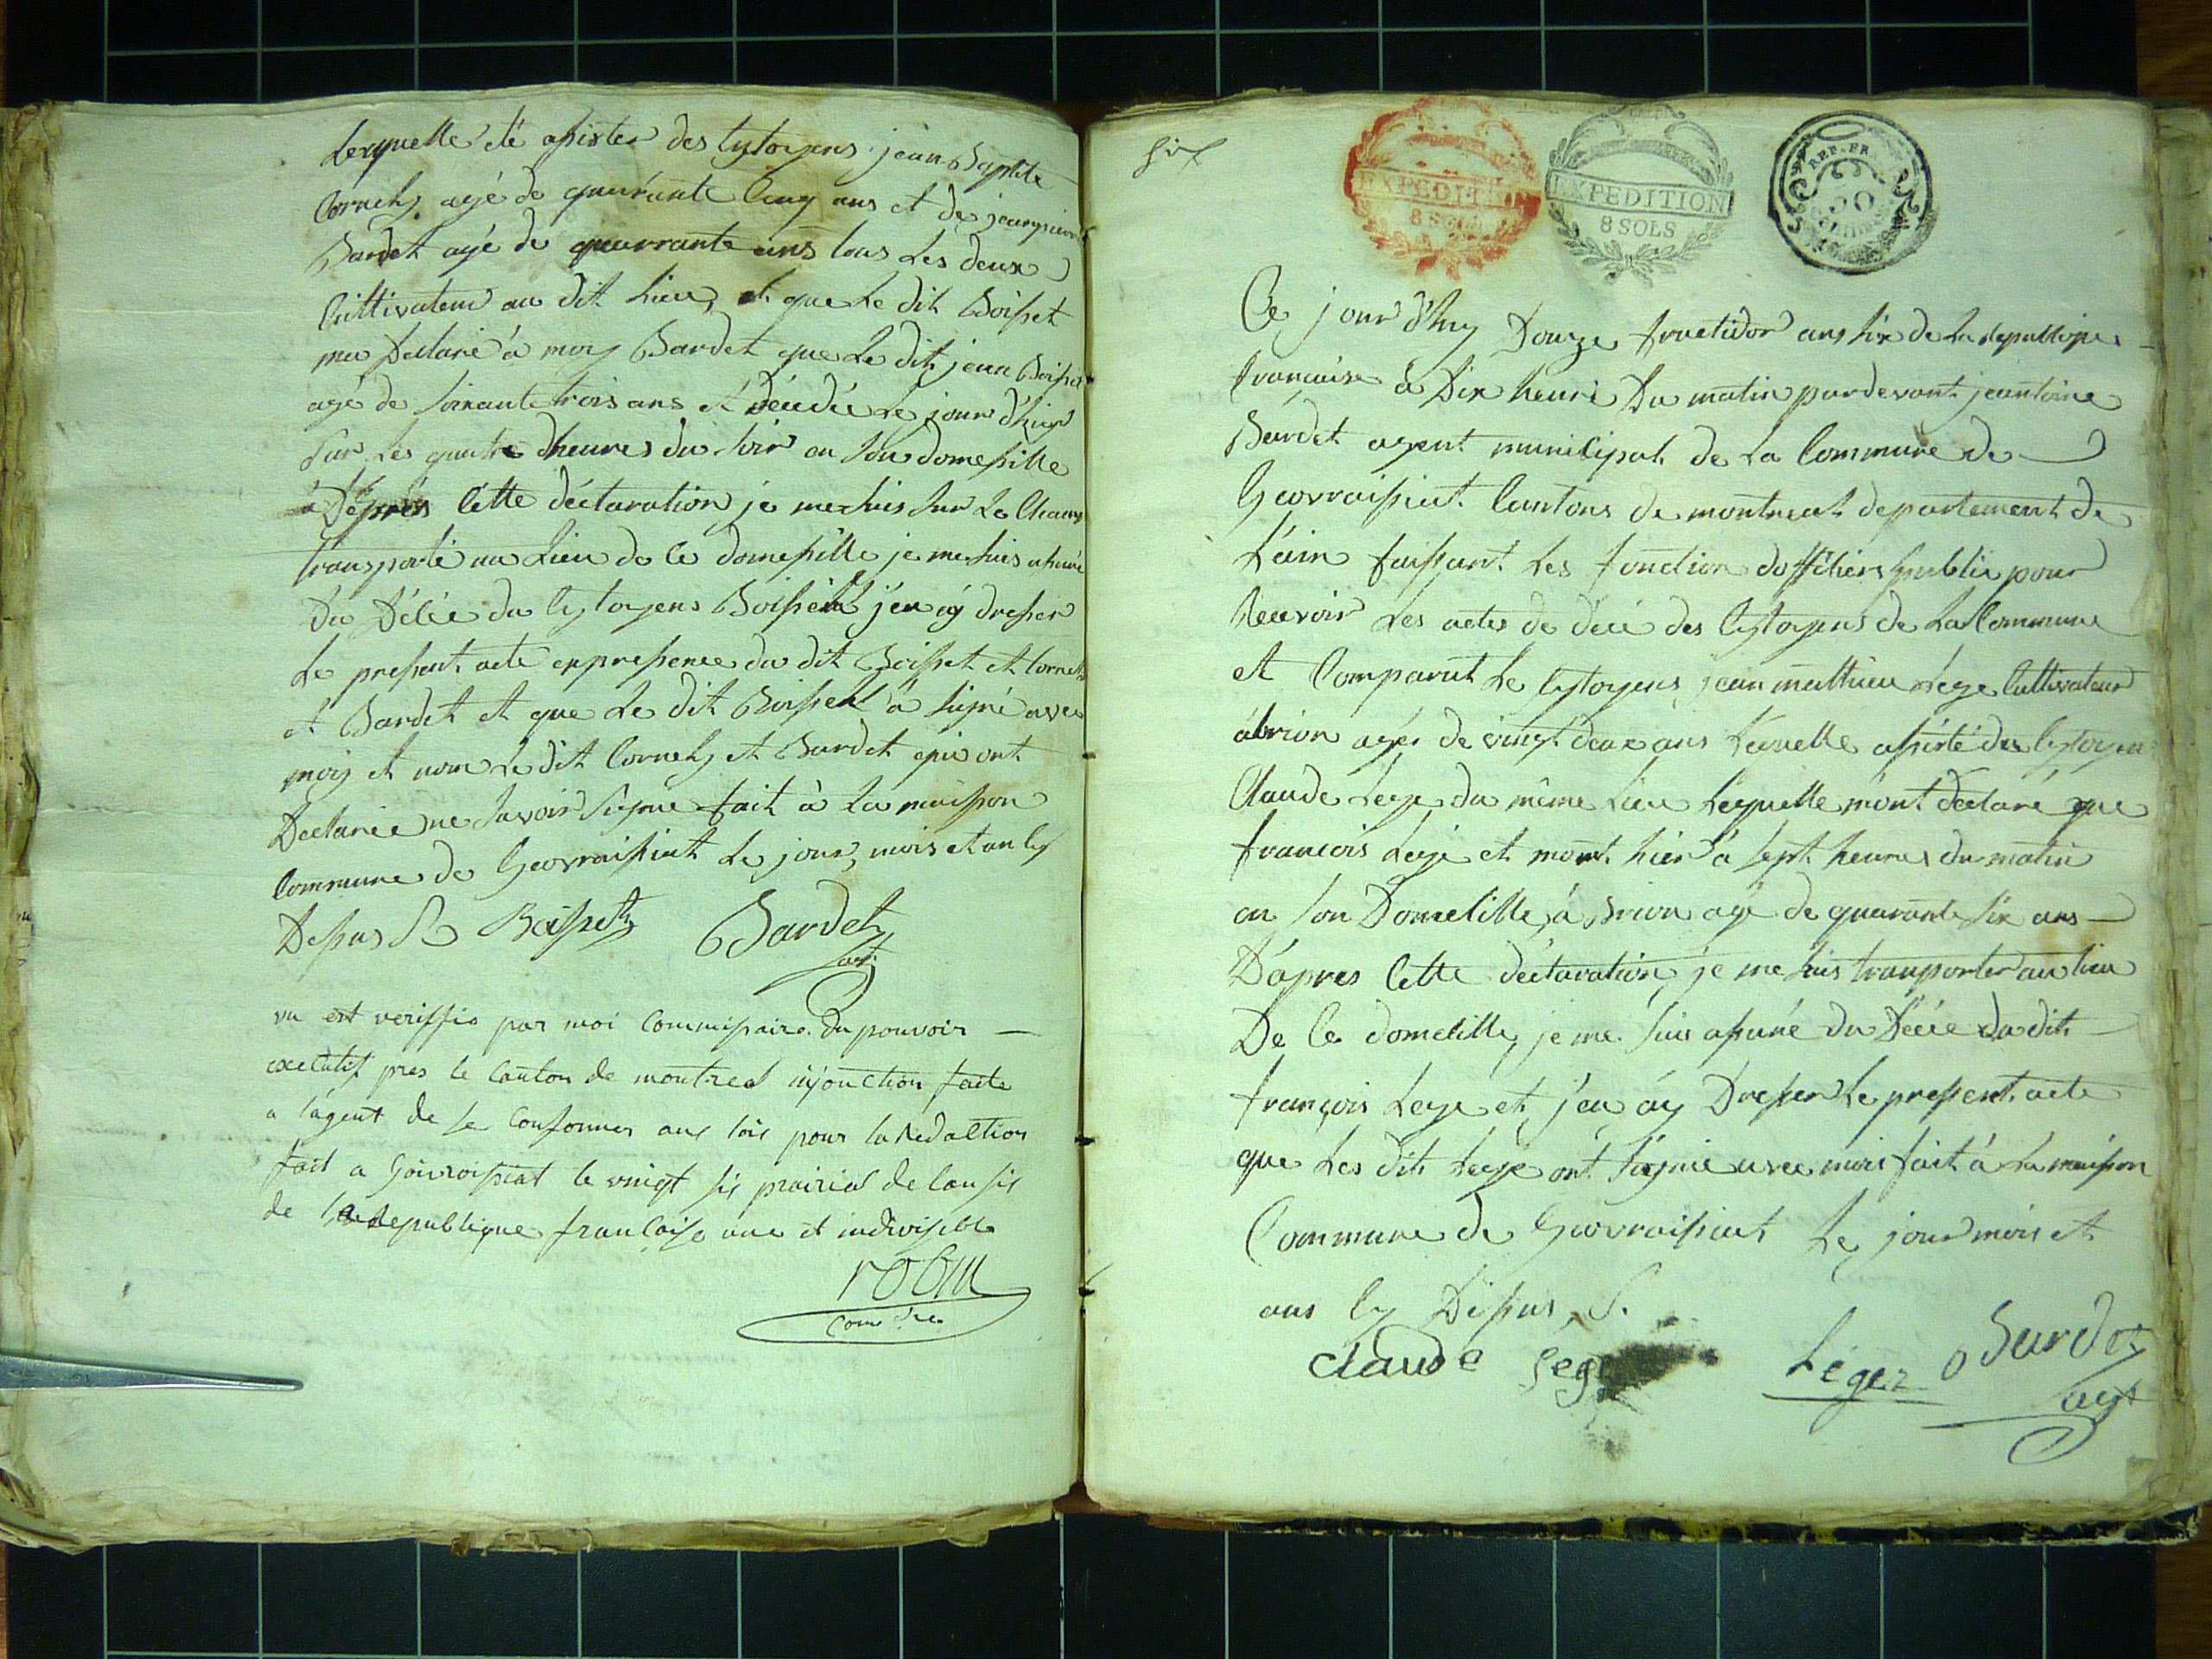 Lequelle été assister des Cytoyens jean Baptiste
Cornely agé de quarante Cinq ans et de jeanpierre
Bardet agé de quarrante ans tous Les deux
Cultivateur au dit Lieu, et que Le dit Boisset
ma Declaré à moy Bardet que Le dit jean Boisset
agé de soixante trois ans et décédée Le jour d'hier
sur Les quatre dheures du soir en son domessille
D'épres Cette déclaration je me suis sur Le Champ
transporté au Lieu de Ce domessille je me suis assuré
Du Décée du Cytoyens Boisset j'en ay dresser
Le present acte enpresence du dit Boisset et Cornely
et Bardet et que Le dit Boisset à signé avec
moy et nom Le dit Cornely et Bardet qui ont
Declarée ne savoir signe fait à La maisson
Commune de Geovraissiat Le jour, mois et an Cy
Dessus Boisset Bardet
agt
vu est veriffié par moi Commissaire du pouvoir
executif pres le Canton de montreal injonction faite
a l'agent de se Conformer aux lois pour la Redaction
fait a Geovroissiat le vingt six prairial de l'an six
de la Republique francaise une et indivisible
six
EXPEDITION
8 SOLS
EXPEDITION
8 SOLS
REP. FR.
50
Ce jour d'huy Douze fructidor ans six de La Republique
francaise à Dix heure Du matin pardevant jeantoine
Bardet agent municipal de La Commune de
Geovraissiat Cantons de montreal departement de
L'ain faissant Les fonction dofficiers public pour
Recevoir Les actes de décé des Cytoyens de La Commune
et Comparut Le Cytoyens jean matthieu Lege Cultivateur
a brion agés de vingt deux ans Lequelle assisté des Cytoyen
Claude Lege du même Lieu Lequelle m'ont déclaré que
francois Lege et mort hier à sept heures du matin
en son Domelille à Brion agé de quarante six ans
D'apres Cette déclaration, je me suis transporter au lieu
De Ce domelille, je me suis assuré du Décée du dit
françois Lege et j'en ay Dresser Le pressent acte
que Les dit Lege ont signié avec moi fait à La maisson
Commune de Geovraissiat Le jour mois et
ans Cy Dessus
Claude Lege Léger Bardet
agt